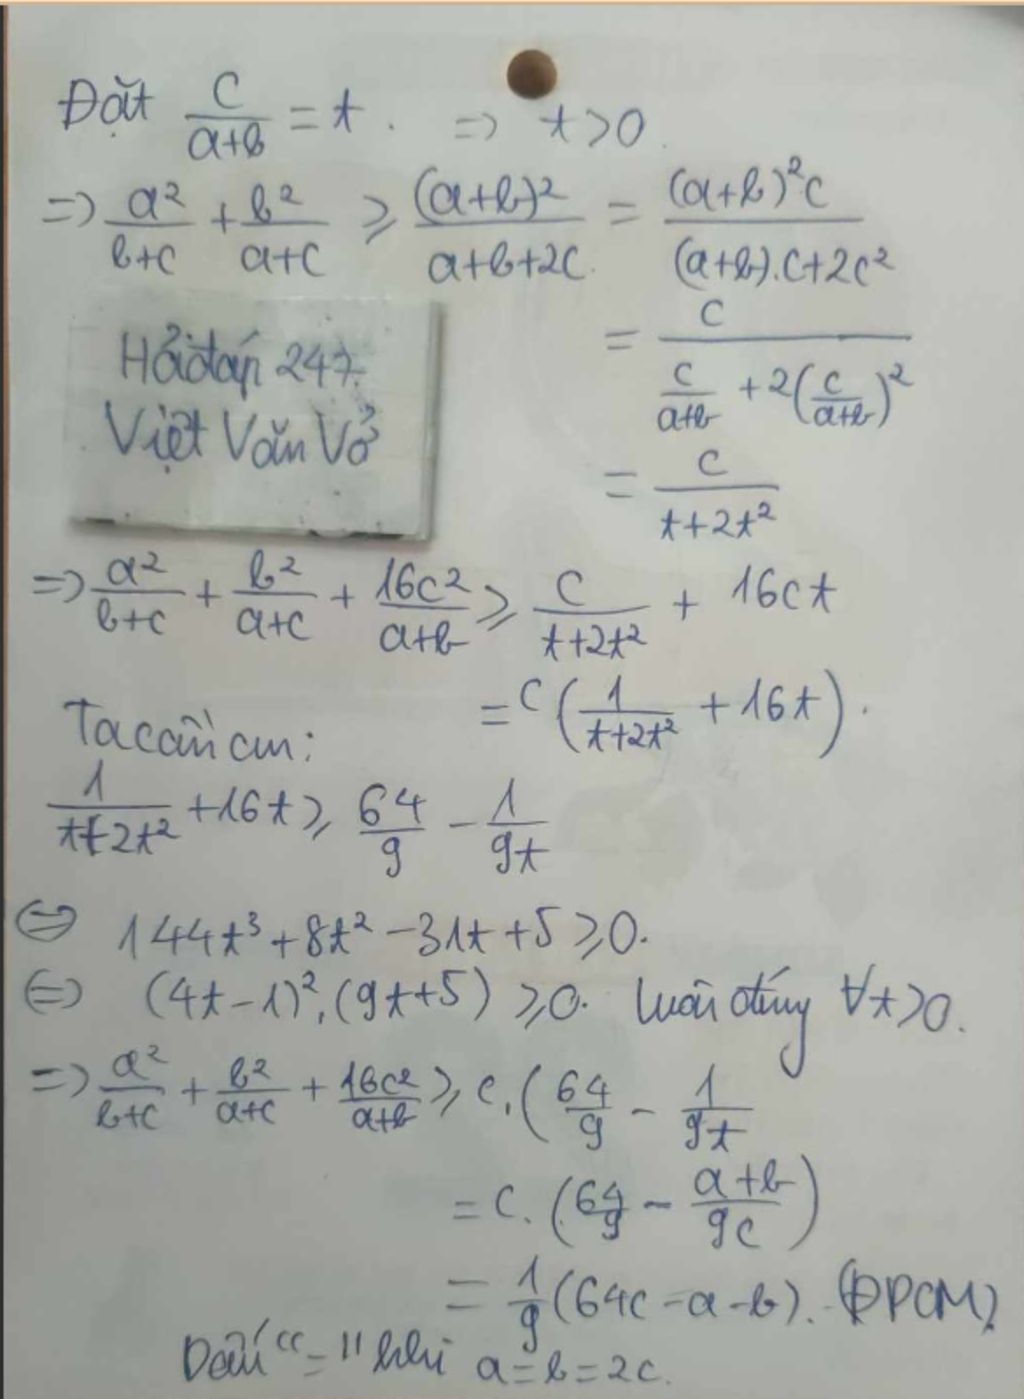 Đặt \frac{c}{a+b} = t. => t > 0.
=> \frac{a²}{b+c} + \frac{b²}{a+c} ≥ \frac{(a+b)²}{a+b+2c} = \frac{(a+b)²c}{(a+b).c+2c²}
= \frac{c}{\frac{c}{a+b} + 2(\frac{c}{a+b})²}
Hỏi đáp 247.
Việt Văn Vở
= \frac{c}{t+2t²}
=> \frac{a²}{b+c} + \frac{b²}{a+c} + \frac{16c²}{a+b} ≥ \frac{c}{t+2t²} + 16ct
= c(\frac{1}{t+2t²} + 16t).
Ta cần cm:
\frac{1}{t+2t²} + 16t ≥ \frac{64}{9} - \frac{1}{9t}
<=> 144t³ + 8t² - 31t + 5 ≥ 0.
<=> (4t-1)².(9t+5) ≥ 0. luôn đúng ∀t>0.
=> \frac{a²}{b+c} + \frac{b²}{a+c} + \frac{16c²}{a+b} ≥ c.(\frac{64}{9} - \frac{1}{9t}
= c.(\frac{64}{9} - \frac{a+b}{9c})
= \frac{1}{9}(64c - a - b). (ĐPCM)
Dấu "=" khi a = b = 2c.